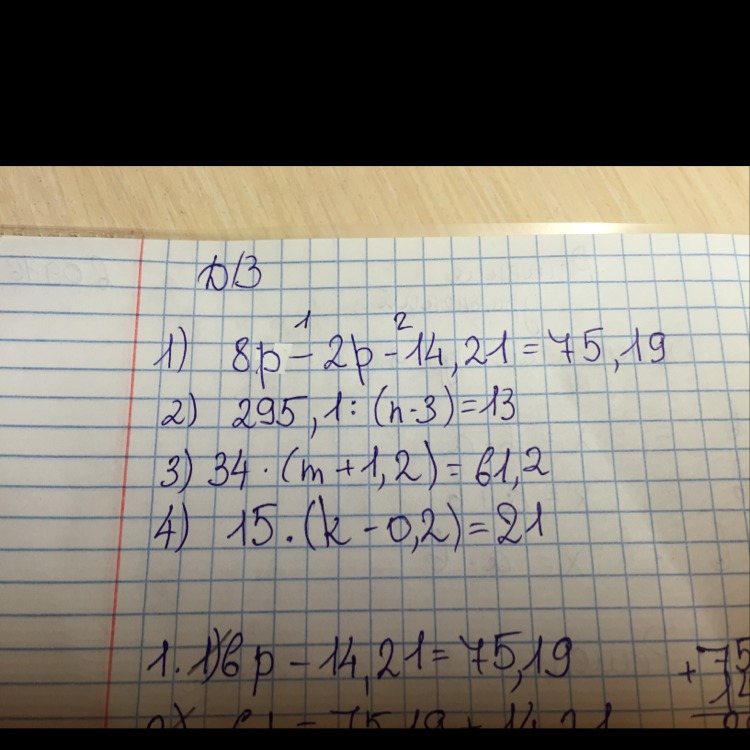 Д/З
1) 8p - 2p - 14,21 = 75,19
1 2
2) 295,1 : (n - 3) = 13
3) 34 · (m + 1,2) = 61,2
4) 15 · (k - 0,2) = 21
1. 1) 6p - 14,21 = 75,19
+ 75
14
= 75,19 + 14,21